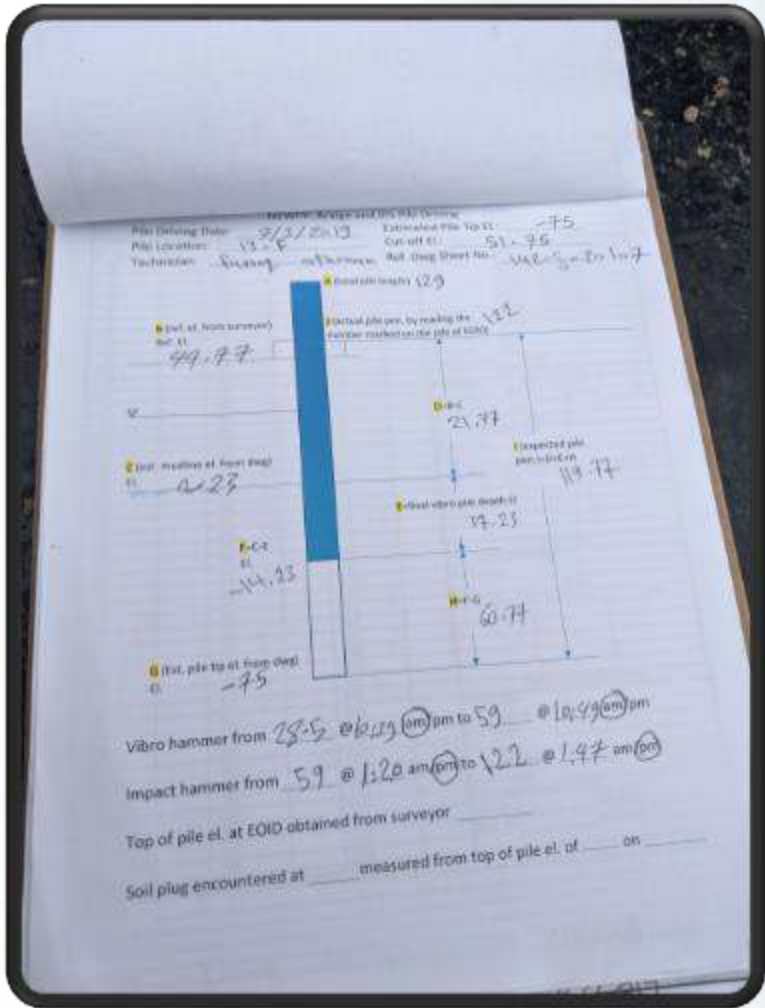 Bridge and IPS Pile Driving
Pile Driving Date: 7/3/2019 Estimated Pile Tip El: -75
Pile Location: 13-F Cut off El.: 51.75
Technician: Ref. Dwg Sheet No.:
A (total pile length) 129
B (ref. el. from surveyor)
Ref. El.
49.77
J (actual pile pen. by reading the
number marked on the pile at EOID) 122
D=B-C
21.77
I (expected pile
pen.)=D+E+H
119.77
C (est. mudline el. from dwg)
El.
E=final vibro pile depth-D
37.23
F=C-E
El.
-14.23
H=F-G
60.77
G (Est. pile tip el. from dwg)
El. -75
Vibro hammer from 28.5 @ 10:29 am/pm to 59 @ 10:49 am/pm
Impact hammer from 59 @ 1:20 am/pm to 122 @ 1:47 am/pm
Top of pile el. at EOID obtained from surveyor
Soil plug encountered at measured from top of pile el. of on